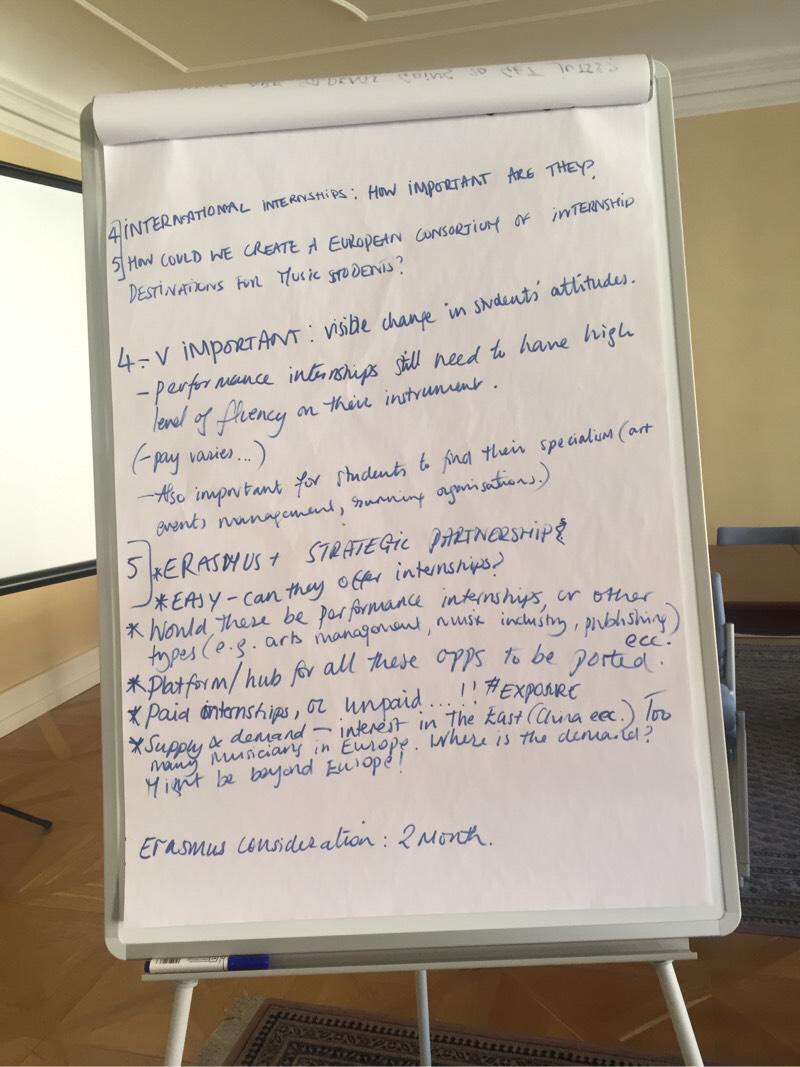 4] INTERNATIONAL INTERNSHIPS: HOW IMPORTANT ARE THEY?
5] HOW COULD WE CREATE A EUROPEAN CONSORTIUM OF INTERNSHIP
DESTINATIONS FOR MUSIC STUDENTS?
4 - V IMPORTANT: visible change in students' attitudes.
- performance internships still need to have high
level of fluency on their instrument.
(- pay varies...)
- Also important for students to find their specialism (art
events management, running organisations.)
5] *ERASMUS + STRATEGIC PARTNERSHIPS
*EASY - can they offer internships?
* Would these be performance internships, or other
types (e.g. arts management, music industry, publishing)
ecc.
* Platform/hub for all these opps to be posted.
* Paid internships, or unpaid...!! #EXPOSURE
* Supply & demand - interest in the East (China ecc.) Too
many musicians in Europe. Where is the demand?
Might be beyond Europe!
Erasmus consideration: 2 Month.